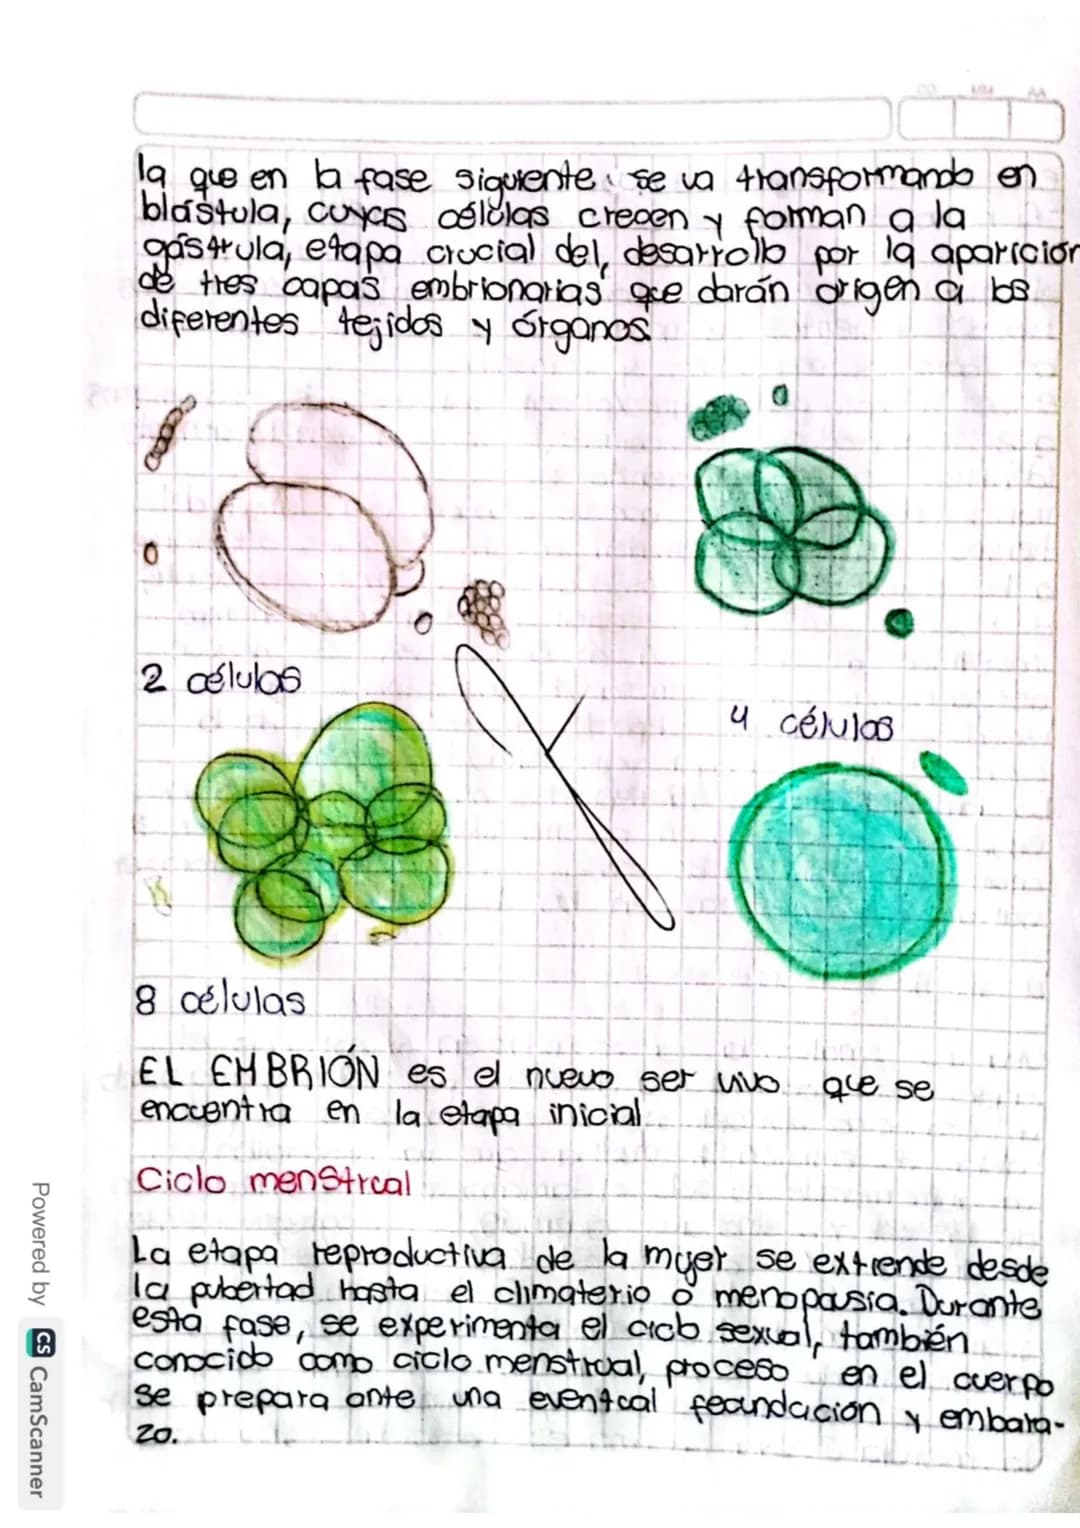 DD MM AA
la que en la fase siguiente se va transformando en
blástula, cuyas células crecen y forman a la
gástrula, etapa crucial del desarrollo por la aparición
de tres capas embrionarias que darán origen a los
diferentes tejidos y órganos
2 células
4 células
8 células
EL EMBRIÓN es el nuevo ser vivo que se
encuentra en la etapa inicial
Ciclo menstrual
La etapa reproductiva de la mujer se extiende desde
la pubertad hasta el climaterio o menopausia. Durante
esta fase, se experimenta el ciclo sexual, también
conocido como ciclo menstrual, proceso en el cuerpo
se prepara ante una eventual fecundación y embara-
zo.
Powered by CS CamScanner